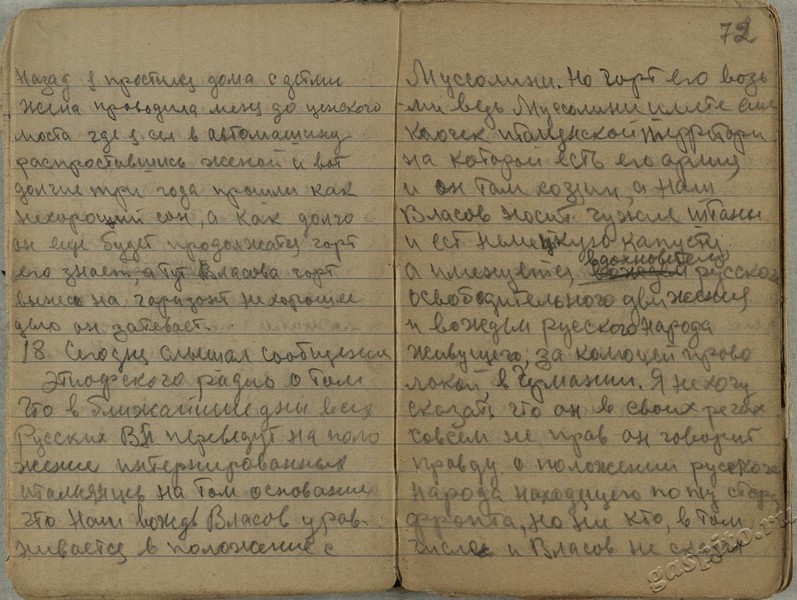 назад я простился дома с детми
жена проводила меня до ценского
моста где я сел в автомашину
распроставшись женой и вот
долгие три года прошли как
нехороший сон, а как долго
он еще будет продолжатся чорт
его знает, а тут Власова чорт
вынес на гаризонт нехорошие
дело он затевает.
18 Сегодня слышал сообщении
радио о том
что в ближайшие дни всех
Русских ВП переведут на поло
жение интернированных
итальянцев на том основании
что наш вождь Власов урав-
нивается в положение с
72
Муссолини. Но чорт его возь
-ми ведь Муссолини имеете еще
клочек италянской территори
на которой есть его армия
и он там хозяин, а наш
Власов носит чужие штаны
и ест немецкую капусту
вдохновитель
а именуется вождем русского
освободительного движения
и вождем русского народа
живущего, за колючей прово
локой в Германии. Я не хочу
сказать что он в своих речах
совсем не прав он говорит
правду о положении русского
народа находящего по ту сторо
фронта, но ни кто, в том
числе и Власов не
gaspito.ru